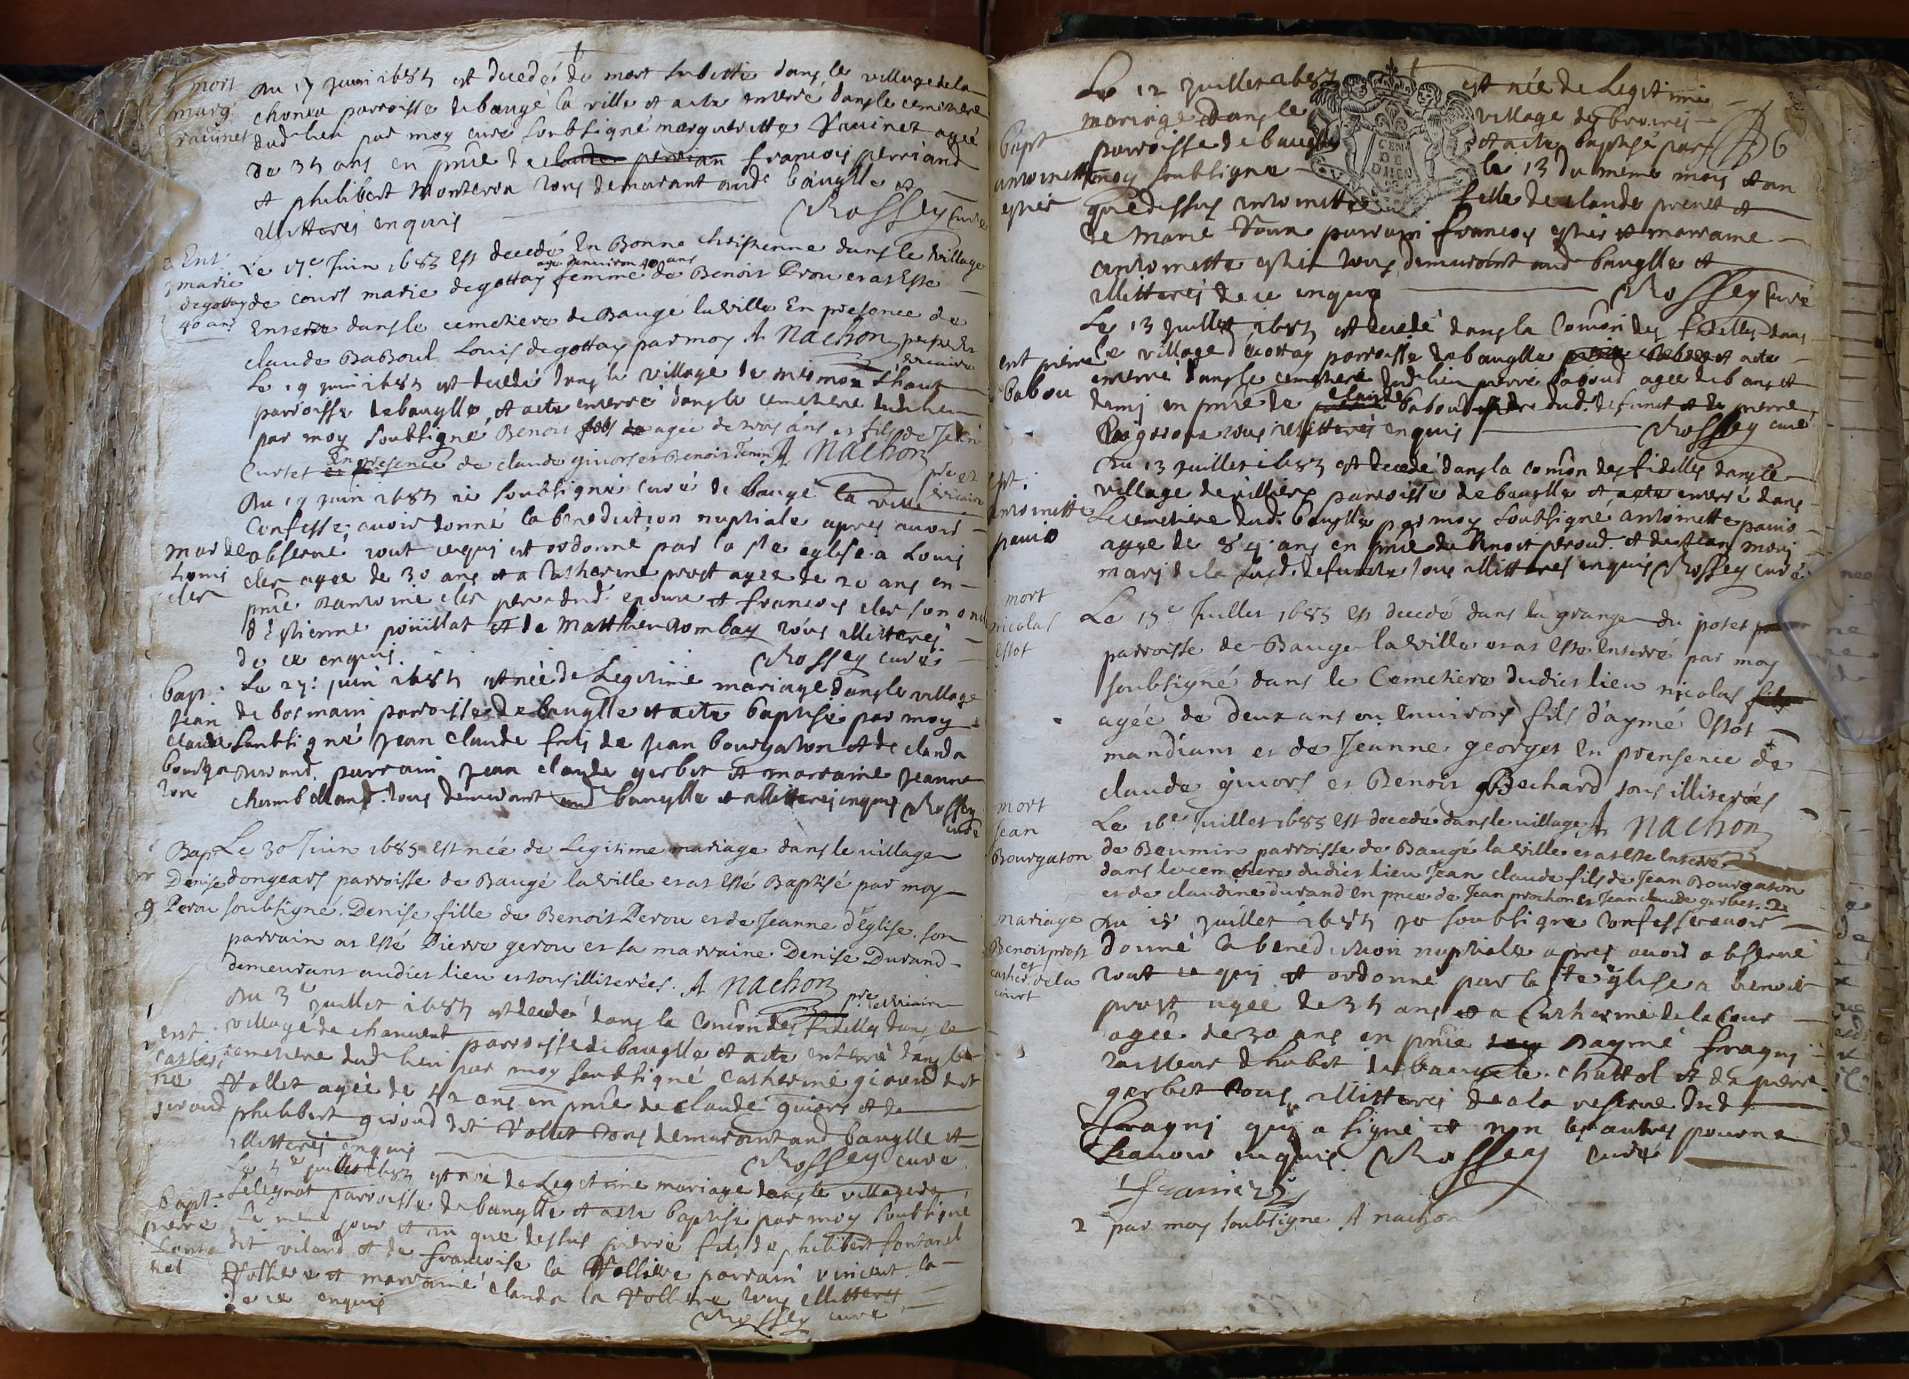 mort
marg
ravinet
Au 17 juin 1685 est decedé de mort subitte dans le village de la
chonea parroisse de baugé la ville et a esté enterré dans le cemetiere
dud lieu par moy curé soubsigné margueritte Ravinet agée
de 35 ans en pnce de francois perriand
et philibert monterra tous demurant aud bauglle et
illitterés enquis Rossey curé
Ent
marie
degottay
40 ans
Le 17e Juin 1685 est decedé En Bonne chrestienne dans le village
agé denviron 40 ans
de court marie degottay femme de Benoit Perou et at Esté
Enterré dans le cemetiere de Baugé la ville En presence de
claude BaBoul Louis degottay par moy A Nachon pbre et
vicaire
Le 19 juin 1685 est decedé dans le village de
parroisse de bauglle et a esté enterré dans le cemetiere dud lieu
par moy soubsigné Benoit agee de trois ans et fils de Jean
Curtet En presence de claude givors et Benoit A Nachon
pbre et
vicaire
mar de
Louis
cler
Au 19 juin 1685 je soubsigné curé de baugé la ville
Confesse avoir donné la benediction nuptiale apres avoir
observé tout ce qui est ordonné par la ste eglise a Louis
cler agee de 30 ans et a Catherine prost agee de 20 ans en
pnce dantoine cler pere dud epoux et francois cler son oncle
d'Estienne poüillat et de Matthieu Rombay tous illitterés
de ce enquis Rossey curé
bap
Jean
claude
bourga
ton
Le 27 juin 1685 est née de Legitime mariage dans le village
de bosmain parroisse de bauglle et a esté baptisé par moy
soubsigné Jean Claude fils de Jean bourgaton et de clauda
durand parrain Jean claude gerbet et marraine Jeanne
chambelland tous demurant aud bauglle et illitterés enquis Rossey
curé
Bap
Denise
Perou
Le 30 Juin 1685 est née de Legitime mariage dans le village
dongears parroisse de Baugé la ville et at Esté Baptisé par moy
soubsigné Denise fille de Benoit Perou et de Jeanne d'Eglise son
parrain at Esté Pierre gerou et sa marraine Denise Durand
demeurans audict lieu et tous illiterées A Nachon
pbre vicaire
ent
Catheri
ne
giroud
Au 3e juillet 1685 est decedé dans la Comôn des fidelles dans le
village de chanvent parroisse de bauglle et a esté enterré dans le
cemetiere dud lieu par moy soubsigné Catherine giroud dit
Vollet agée de 42 ans en pnce de claude givors et de
philibert giroud dit Vollet tous demurant aud baugylle et
illitterés enquis Rossey curé
bapt
pierre
fonta
nel
Le 5e juillet 1685 est né de Legitime mariage dans le village de
Lelegnot parroisse de baugylle et a esté baptisé par moy soubsigné
le meme jour et an que dessus pierre fils de philibert fontanel
dit vilard et de francoise la Vollière parrain vincent la
Volliere et marraine clauda la Volliere tous illitterés
de ce enquis Rossey curé
6
bapt
antoinette
esties
Le 12 juillet 1685 est née de Legitime
mariage dans le village de
parroisse de baugylle et a esté baptisé par
moy soubsigné le 13 du meme mois et an
que dessus antoinette fille de claude prenet et
de Marie parrain francois estier et marraine
antoinette estier tous demurant aud baugylle et
illitterés de ce enquis Rossey curé
ent pierre
babou
Le 13 juillet 1685 est decedé dans la Comôn des fidelles dans
le village decottay parroisse de baugylle et a esté
enterré dans le cemetiere dud lieu pierre baboud agee de 6 ans et
demy en pnce de claude baboul pere dud defunct et de pierre
tous illitterés enquis Rossey curé
ent
antoinette
pavio
Au 13 juillet 1685 est decedé dans la comôn des fidelles dans le
village de villiers parroisse de baugylle et a esté enterré dans
Le cemetiere dud baugylle par moy soubsigné antoinette pavio
agge de ans en pnce de Benoit peroud et de Jean
mary de la sud defuncte tous illitterés enquis Rossey curé
mort
nicolas
Estot
Le 15e Juillet 1685 est decedé dans la grange du poset
parroisse de Baugé la ville et at Esté Enterré par moy
soubsigné dans le Cemetiere dudict lieu nicolas
agée de deux ans ou Environ fils d'aymé Estot
mandiant et de Jeanne georget En presence de
claude givors et Benoit Bechard tous illiterées
A Nachon
mort
Jean
Bourgaton
Le 16e Juillet 1685 est decedé dans le village
de Beumin parroisse de Baugé la ville et at Esté Enterré
dans le cemetiere dudict lieu Jean claude fils de Jean Bourgaton
et de claudine durand En pnce de Jean prochon et Jean claude gerbet. 2
mariage
Benoit prost
et
cather. de la
court
Au 18 juillet 1685 je soubsigné Confesse avoir
donné la benediction nuptiale apres avoir observé
tout ce qui est ordonné par la ste eglise a benoit
prost agee de 35 ans et a Catherine de la Cour
agée de 30 ans en pnce daymé fragny
tailleur dhabit de baugé le chattel et de pierre
gerbet tous illitterés de a la reserve dud
fragny qui a signé et non les autres pour ne
scavoir enquis Rossey curé
2 par moy soubsigne A nachon